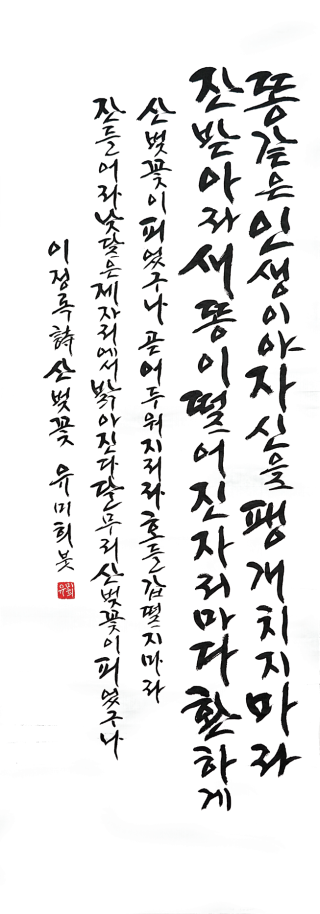 똥 같은 인생이야 자신을 팽개치지 마라
잔 받아라 새똥이 떨어진 자리마다 환하게
산벚꽃이 피었구나 곧 어두워지리라 호들갑 떨지 마라
잔 들어라 낮달은 제자리에서 밝아진다 달무리 산벚꽃이 피었구나
이정록 詩 산벚꽃 유미희 붓